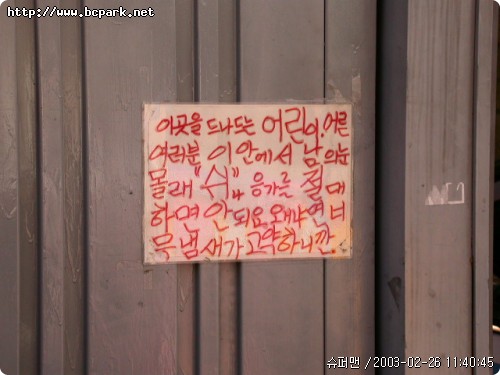 http://www.bcpark.net
이곳을 드나드는 어린이, 어른
여러분 이 안에서 남의눈
몰래 "쉬", 응가를 절대
하면 안 되요 왜냐면 너
무 냄새가 고약하니깐.
슈퍼맨 /2003-02-26 11:40:45